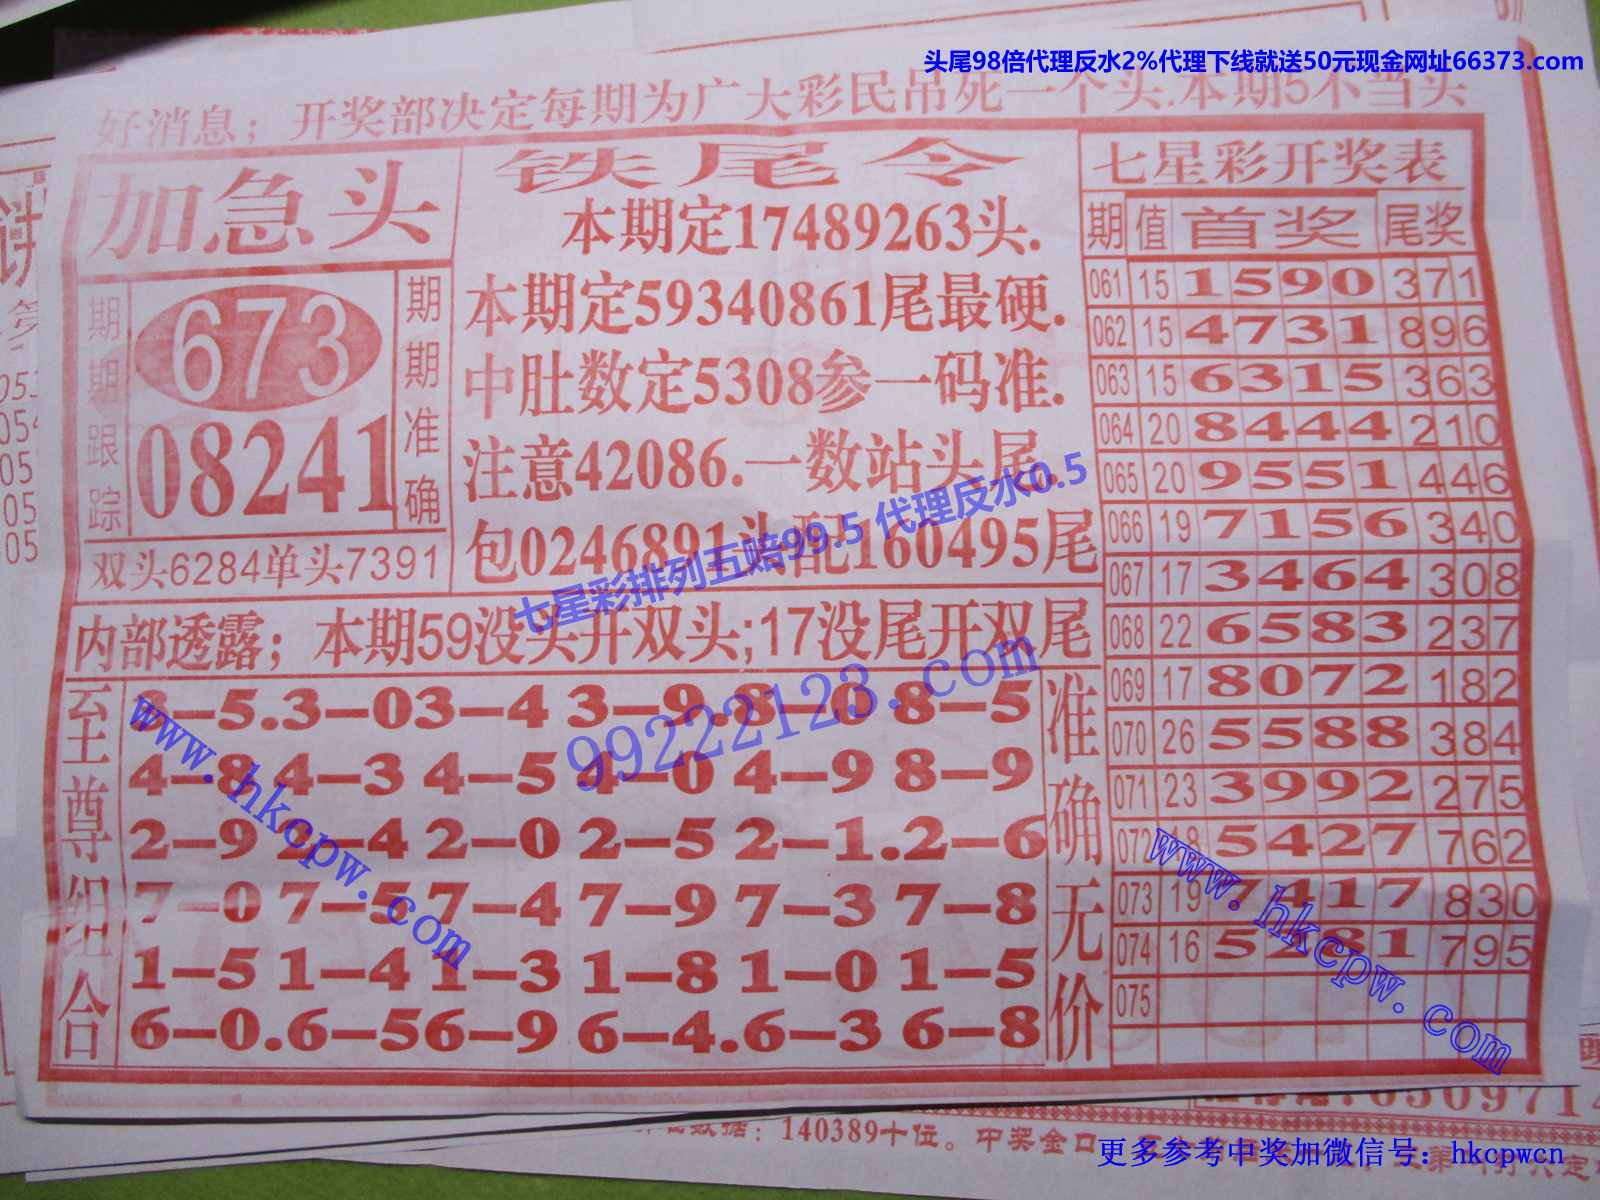 头尾98倍代理反水2%代理下线就送50元现金网址66373.com
好消息；开奖部决定每期为广大彩民吊死一个头.本期5不当头
加急头
期期跟踪
673
08241
期期准确
双头6284单头7391
铁尾令
本期定17489263头.
本期定59340861尾最硬.
中肚数定5308参一码准.
注意42086.一数站头尾.
包0246891头配160495尾
七星彩排列五赔99.5 代理反水0.5
内部透露；本期59没头开双头;17没尾开双尾
99222123.com
至尊组合
8-5.3-03-4 3-9.8-0 8-5
4-8 4-3 4-5 4-0 4-9 8-9
2-9 2-4 2-0 2-5 2-1.2-6
7-0 7-5 7-4 7-9 7-3 7-8
1-5 1-4 1-3 1-8 1-0 1-5
6-0.6-56-9 6-4.6-3 6-8
准确无价
www.hkcpw.com
七星彩开奖表
期 值 首奖 尾奖
061 15 1590 371
062 15 4731 896
063 15 6315 363
064 20 8444 210
065 20 9551 446
066 19 7156 340
067 17 3464 308
068 22 6583 237
069 17 8072 182
070 26 5588 384
071 23 3992 275
072 18 5427 762
073 19 7417 830
074 16 5281 795
075
www.hkcpw.com
140389十位。中奖金口
更多参考中奖加微信号：hkcpwcn